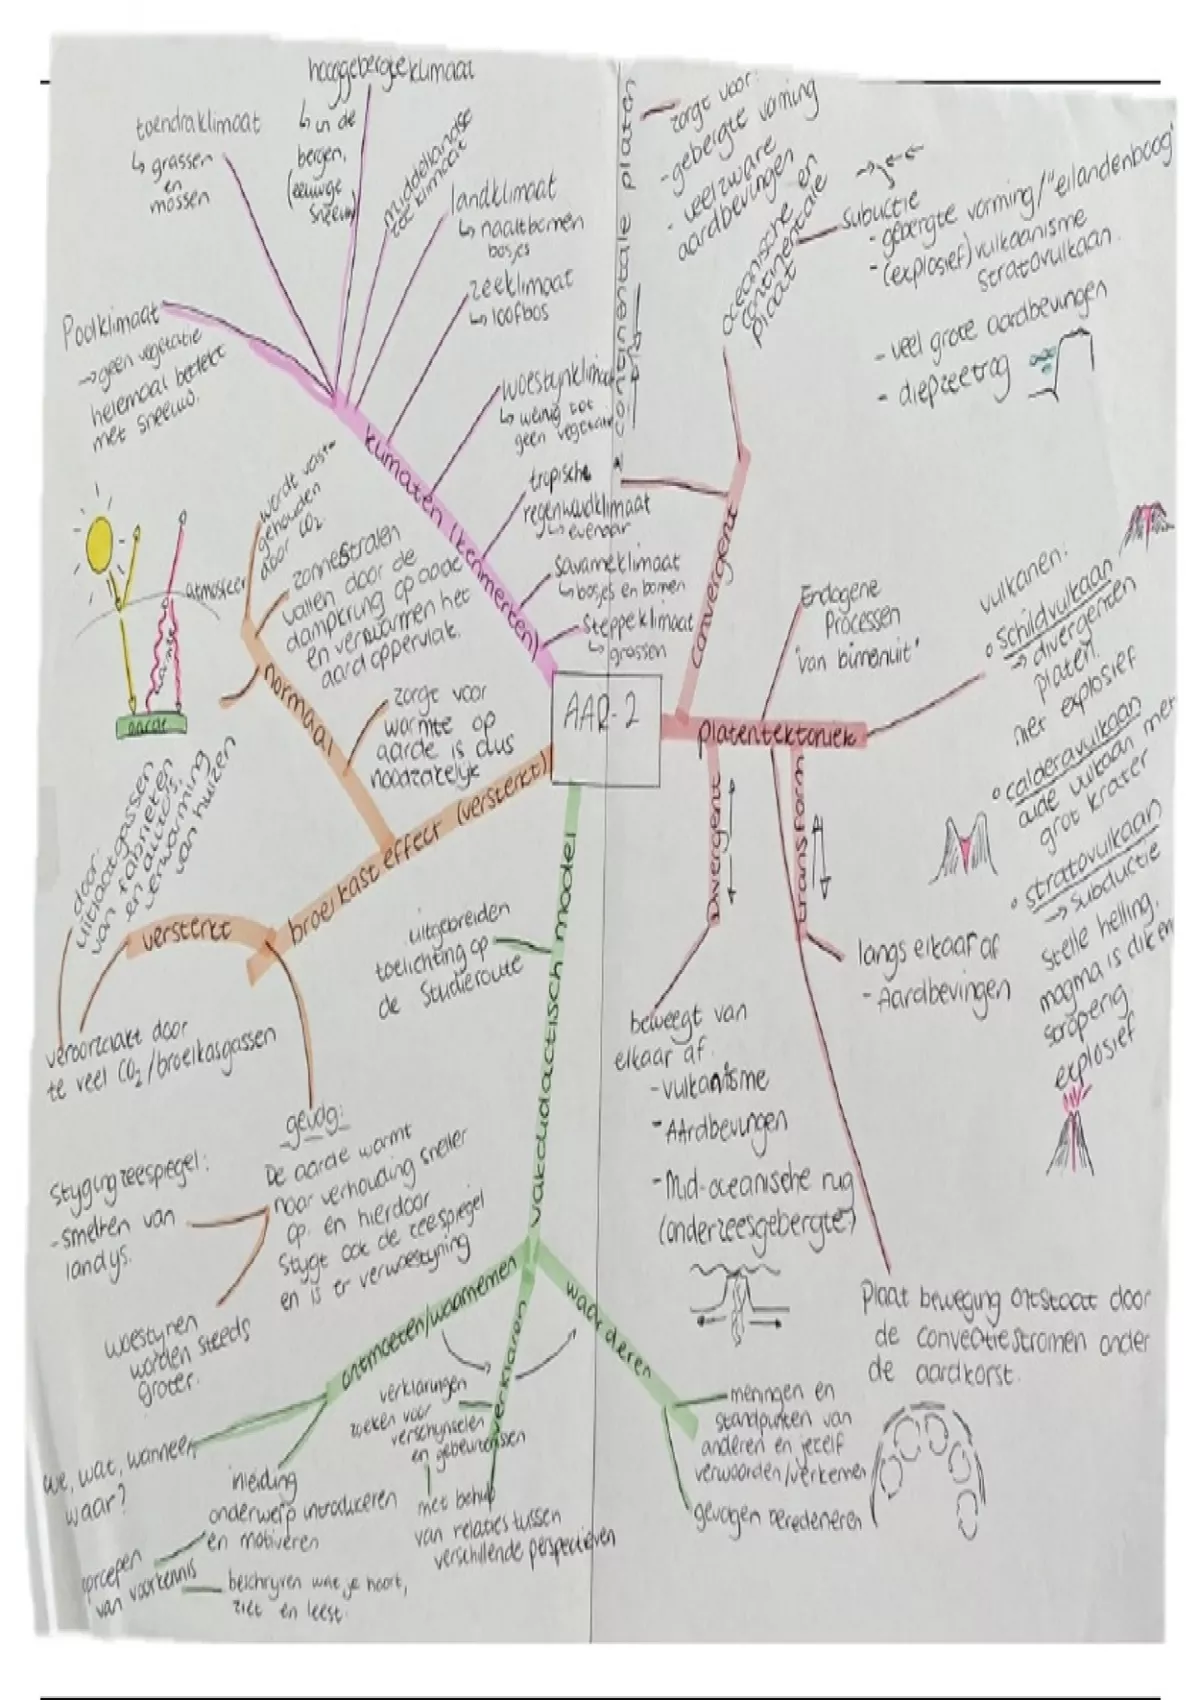 hooggebergteklimaat
↳ in de
bergen,
(eeuwige
sneeuw)
toendraklimaat
↳ grassen
en
mossen
middellandse
zee klimaat
landklimaat
↳ naaltbomen
bosjes
zeeklimaat
↳ loofbos
Poolklimaat
→ geen vegetatie
helemaal bedekt
met sneeuw.
woestijnklimaat
↳ weinig tot
geen vegetatie
tropische
regenwoudklimaat
↳ evenaar
savanneklimaat
↳ bosjes en bomen
steppeklimaat
↳ grassen
klimaten (kenmerken)
AAR-2
wordt vast-
gehouden
door CO2.
zonnestralen
vallen door de
dampkring op aarde
en verwarmen het
aardoppervlak.
atmosfeer
warmte
aarde
normaal
zorgt voor
warmte op
aarde is dus
noodzakelijk
broeikast effect (versterkt)
versterkt
door:
uitlaatgassen
van fabrieken
en auto's,
verwarming
van huizen
veroorzaakt door
te veel CO2/broeikasgassen
gevolg:
De aarde warmt
naar verhouding sneller
op. en hierdoor
stijgt ook de zeespiegel
en is er verwoestijning
Stijging zeespiegel:
- smelten van
landijs.
woestijnen
worden steeds
groter.
vakdidactisch model
uitgebreiden
toelichting op
de Studieroute
ontmoeten/waarnemen
wie, wat, wanneer,
waar?
inleiding
onderwerp introduceren
en motiveren
oproepen
van voorkennis
beschrijven wat je hoort,
ziet en leest.
verklaren
verklaringen
zoeken voor
verschijnselen
en gebeurtenissen
met behulp
van relaties tussen
verschillende perspectieven
waarderen
meningen en
standpunten van
anderen en jezelf
verwoorden/verkennen
gevolgen beredeneren
Platentektoniek
Endogene
Processen
"van binnenuit"
convergent
continentale platen
zorgt voor:
- gebergte vorming
- veel zware
aardbevingen
oceanische en
continentale
plaat
subuctie
- gebergte vorming/"eilandenboog"
- (explosief) vulkaanisme
stratovulkaan.
- veel grote aardbevingen
- diepzeetrog
vulkanen:
schildvulkaan
→ divergenten
platen.
niet explosief
calderavulkaan
oude vulkaan met
grot krater
stratovulkaan
→ subductie
steile helling,
magma is dik en
stroperig
explosief
Divergent
beweegt van
elkaar af.
- vulkanisme
- Aardbevingen
- Mid-oceanische rug
(onderzeesgebergte)
transform
langs elkaar af
- Aardbevingen
Plaat beweging ontstaat door
de convectiestromen onder
de aardkorst.